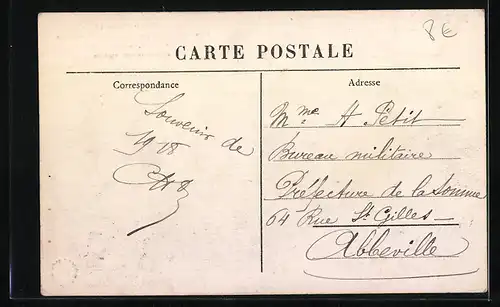 8€
CARTE POSTALE
Correspondance
Souvenir de
1918
Adresse
Mme H Petit
Bureau militaire
Préfecture de la Somme
64 Rue St Gilles
Abbeville